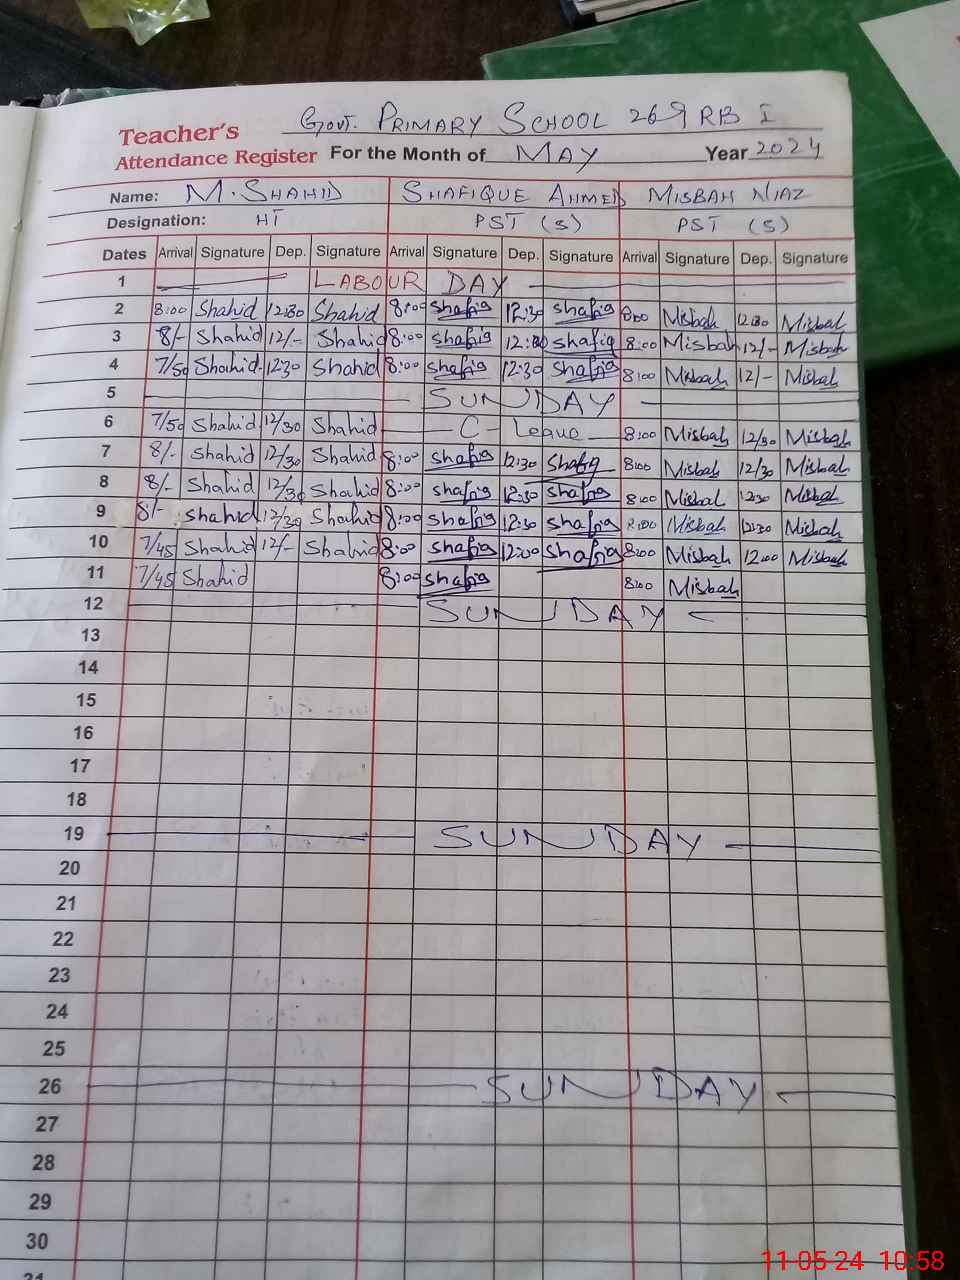 Govt. Primary School 269 RB I
Teacher's
Attendance Register For the Month of May Year 2024
Name: M. Shahid Shafique Ahmed Misbah Niaz
Designation: HT PST (S) PST (S)
Dates Arrival Signature Dep. Signature Arrival Signature Dep. Signature Arrival Signature Dep. Signature
1 LABOUR DAY
2 8:00 Shahid 12:30 Shahid 8:00 Shafiq 12:30 Shafiq 8:00 Misbah 12:30 Misbah
3 8/- Shahid 12/- Shahid 8:00 Shafiq 12:00 Shafiq 8:00 Misbah 12/- Misbah
4 7/50 Shahid 12:30 Shahid 8:00 Shafiq 12:30 Shafiq 8:00 Misbah 12/- Misbah
5 SUNDAY
6 7/50 Shahid 12/30 Shahid C-Leave 8:00 Misbah 12/30 Misbah
7 8/- Shahid 12/30 Shahid 8:00 Shafiq 12:30 Shafiq 8:00 Misbah 12/30 Misbah
8 8/- Shahid 12/30 Shahid 8:00 Shafiq 12:30 Shafiq 8:00 Misbah 12:30 Misbah
9 8/- Shahid 12/30 Shahid 8:00 Shafiq 12:30 Shafiq 8:00 Misbah 12:30 Misbah
10 7/45 Shahid 12/- Shahid 8:00 Shafiq 12:00 Shafiq 8:00 Misbah 12:00 Misbah
11 7/45 Shahid 8:00 Shafiq 8:00 Misbah
12 SUNDAY
13
14
15
16
17
18
19 SUNDAY
20
21
22
23
24
25
26 SUNDAY
27
28
29
30
31
11-05-24 10:58